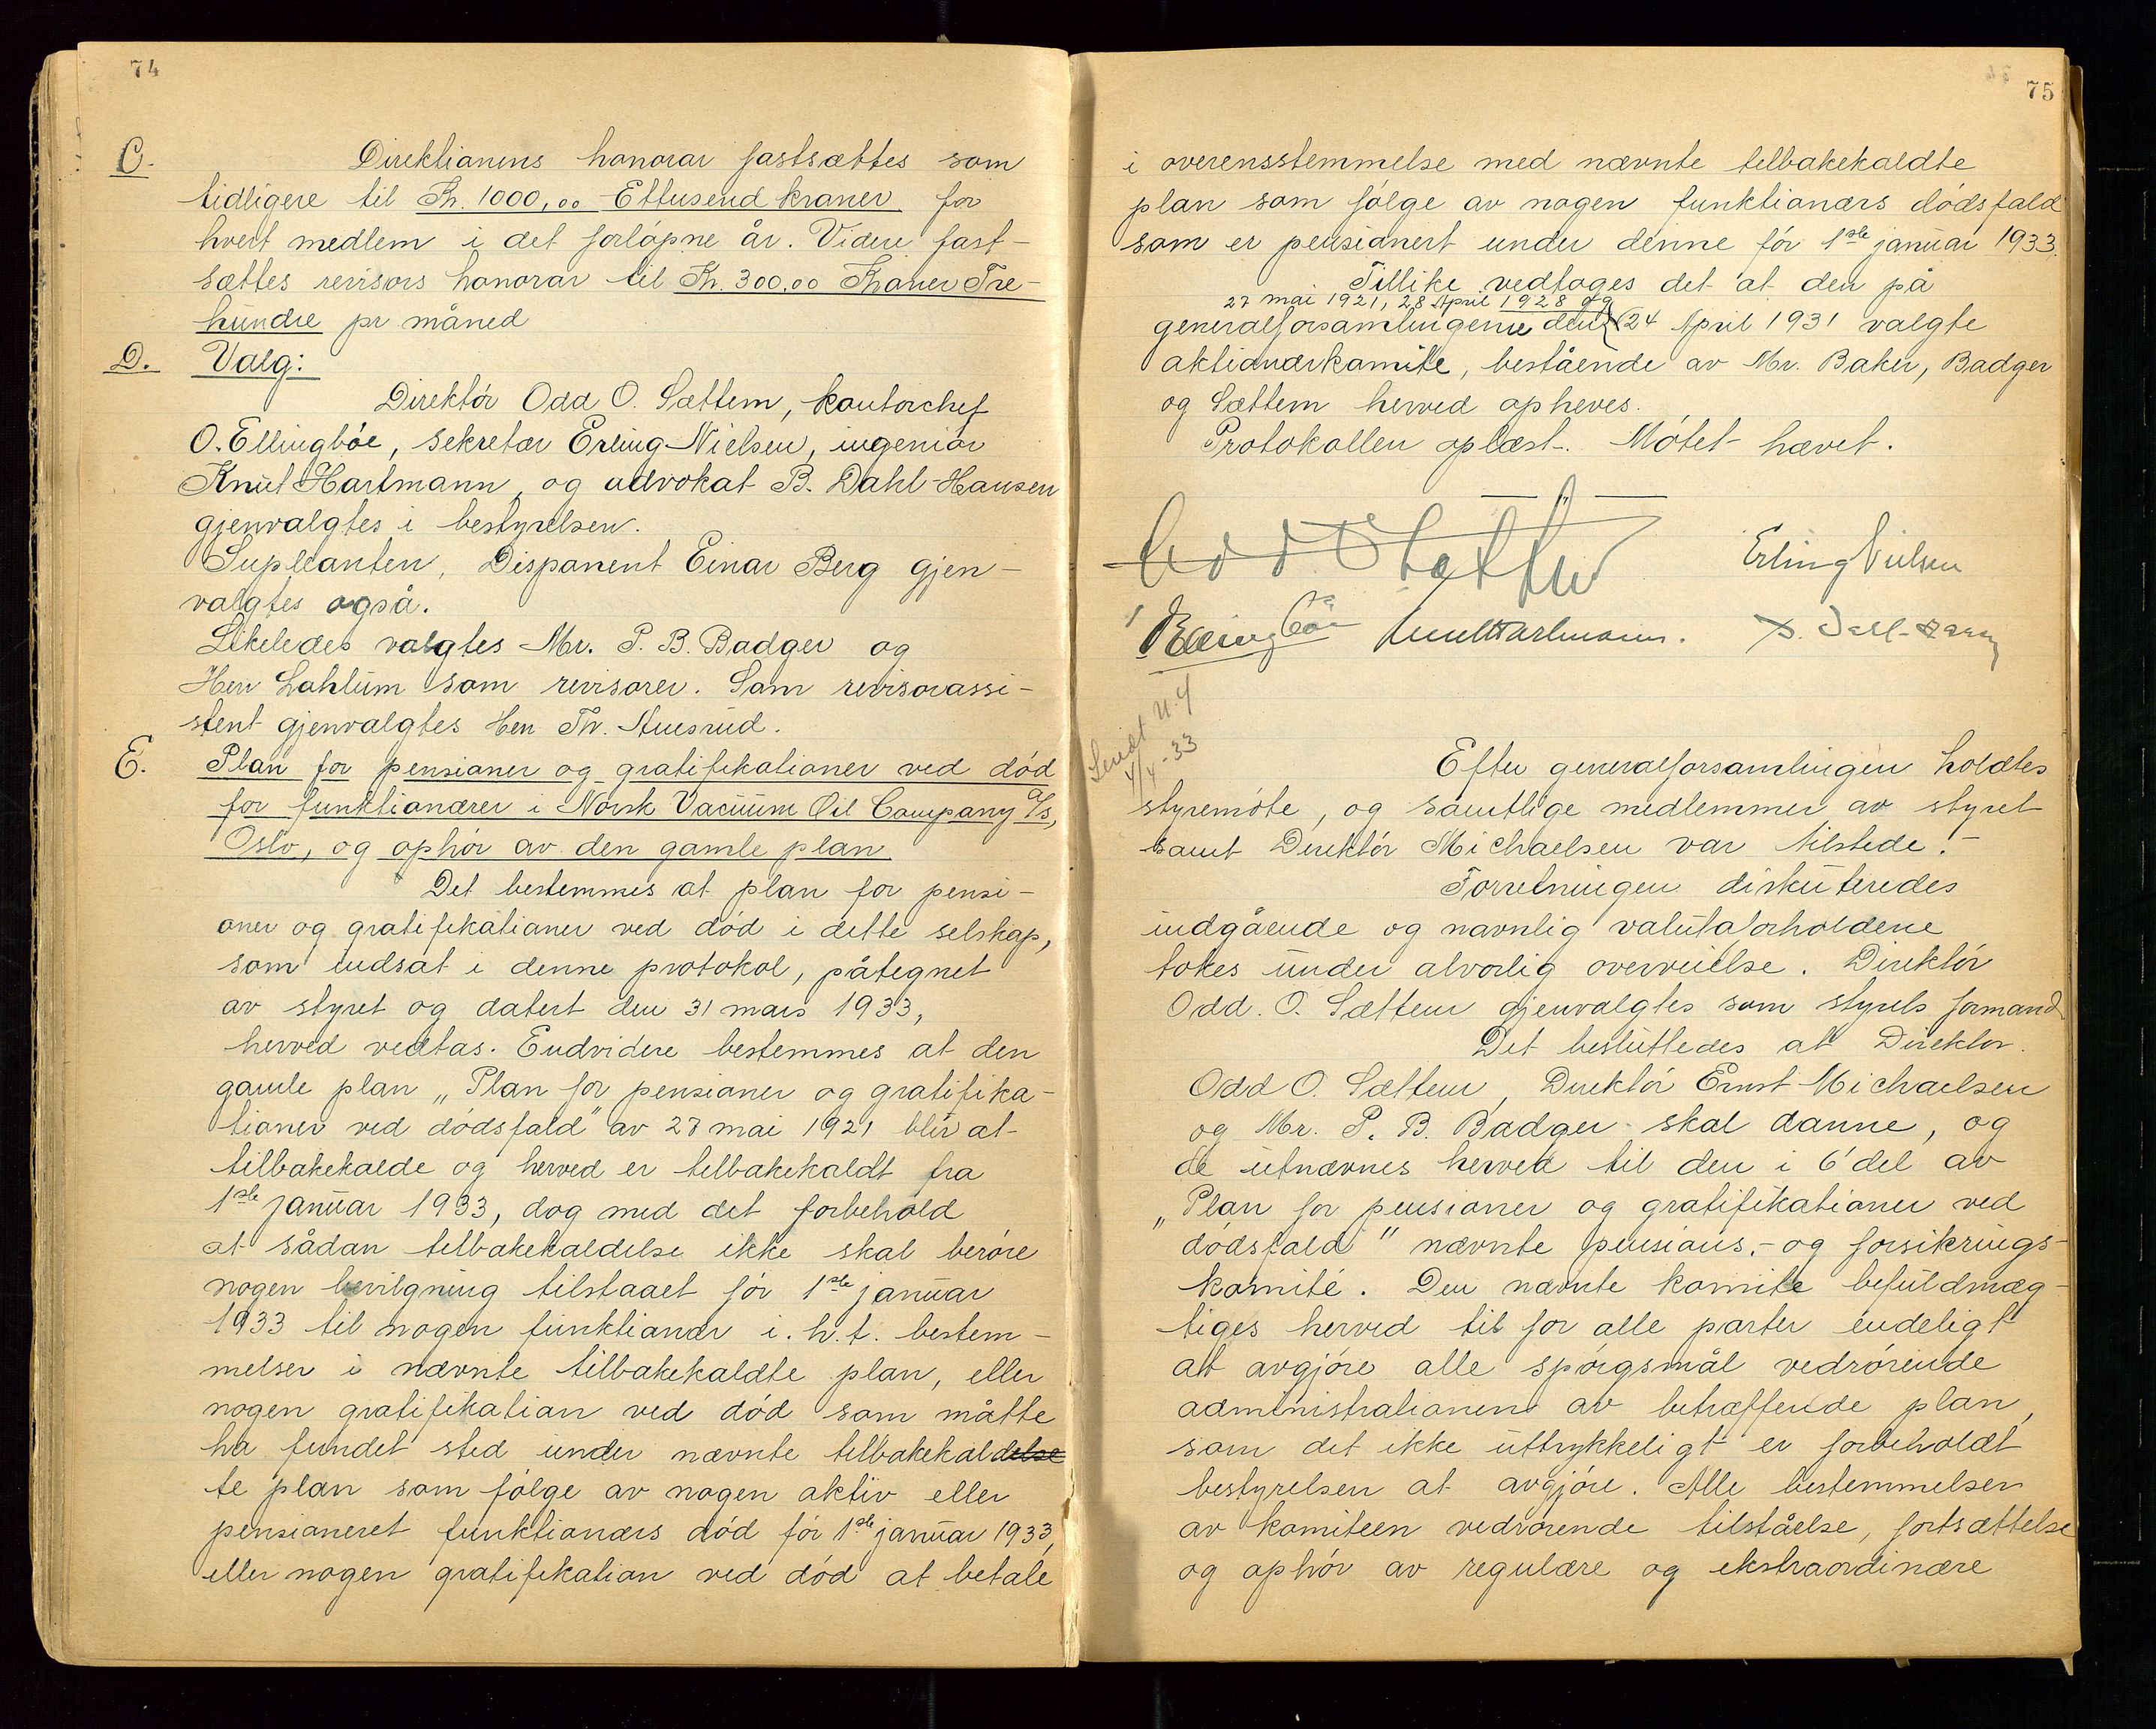 74
C. Direktionens honorar fastsættes som
tidligere til Kr. 1000,00 Ettusend kroner for
hvert medlem i det forløpne år. Videre fast-
sættes revisors honorar til Kr. 300,00 Kroner Tre-
hundre pr måned
D. Valg:
Direktør Odd O. Sættem, kontorchef
O. Ellingbøe, sekretær Erling Nielsen, ingeniør
Knut Hartmann, og advokat B. Dahl-Hansen
gjenvalgtes i bestyrelsen.
Supleanten, Disponent Einar Berg gjen-
valgtes også.
Likeledes valgtes Mr. P. B. Badger og
Herr Lahlum som revisorer. Som revisorassi-
stent gjenvalgtes Herr Th.
E. Plan for pensioner og gratifikationer ved død
for funktionærer i Norsk Vacuum Oil Company A/S,
Oslo, og ophør av den gamle plan
Det bestemmes at plan for pensi-
oner og gratifikationer ved død i dette selskap,
som indsat i denne protokol, påtegnet
av styret og datert den 31 mars 1933,
herved vedtas. Endvidere bestemmes at den
gamle plan „Plan for pensioner og gratifika-
tioner ved dødsfald" av 27 mai 1921 blir at
tilbakekalde og herved er tilbakekaldt fra
1ste januar 1933, dog med det forbehold
at sådan tilbakekaldelse ikke skal berøre
nogen bevilgning tilstaaet før 1ste januar
1933 til nogen funktionær i. h. t. bestem-
melser i nævnte tilbakekaldte plan, eller
nogen gratifikation ved død som måtte
ha fundet sted under nævnte tilbakekaldelse
te plan som følge av nogen aktiv eller
pensioneret funktionærs død før 1ste januar 1933,
eller nogen gratifikation ved død at betale
75
i overensstemmelse med nævnte tilbakekaldte
plan som følge av nogen funktionærs dødsfald
som er pensionert under denne før 1ste januar 1933.
Tillike vedtages det at den på
27 mai 1921, 28 April 1928 og
generalforsamlingene den 24 April 1931 valgte
aktionærkomite, bestående av Mr. Baker, Badger
og Sættem herved opheves.
Protokollen oplæst. Møtet hævet.
Odd O Sættem
Erling Nielsen
O Ellingbøe Knut Hartmann. B. Dahl-Hansen
Sendt N.Y
4/4-33
Efter generalforsamlingen holdtes
styremøte, og samtlige medlemmer av styret
samt Direktør Michaelsen var tilstede.
Forretningen diskuteredes
indgående og navnlig valutaforholdene
tokes under alvorlig overveielse. Direktør
Odd. O. Sættem gjenvalgtes som styrets formand
Det besluttedes at Direktør
Odd O. Sættem, Direktør Ernst Michaelsen
og Mr. P. B. Badger skal danne, og
de utnævnes herved til den i 6' del av
„Plan for pensioner og gratifikationer ved
dødsfald" nævnte pensions,- og forsikrings-
komité. Den nævnte komite befuldmæg-
tiges herved til for alle parter endeligt
at avgjøre alle spørgsmål vedrørende
administrationen av betræffende plan,
som det ikke uttrykkeligt er forbeholdt
bestyrelsen at avgjøre. Alle bestemmelser
av komiteen vedrørende tilståelse, fortsættelse
og ophør av regulære og ekstraordinære